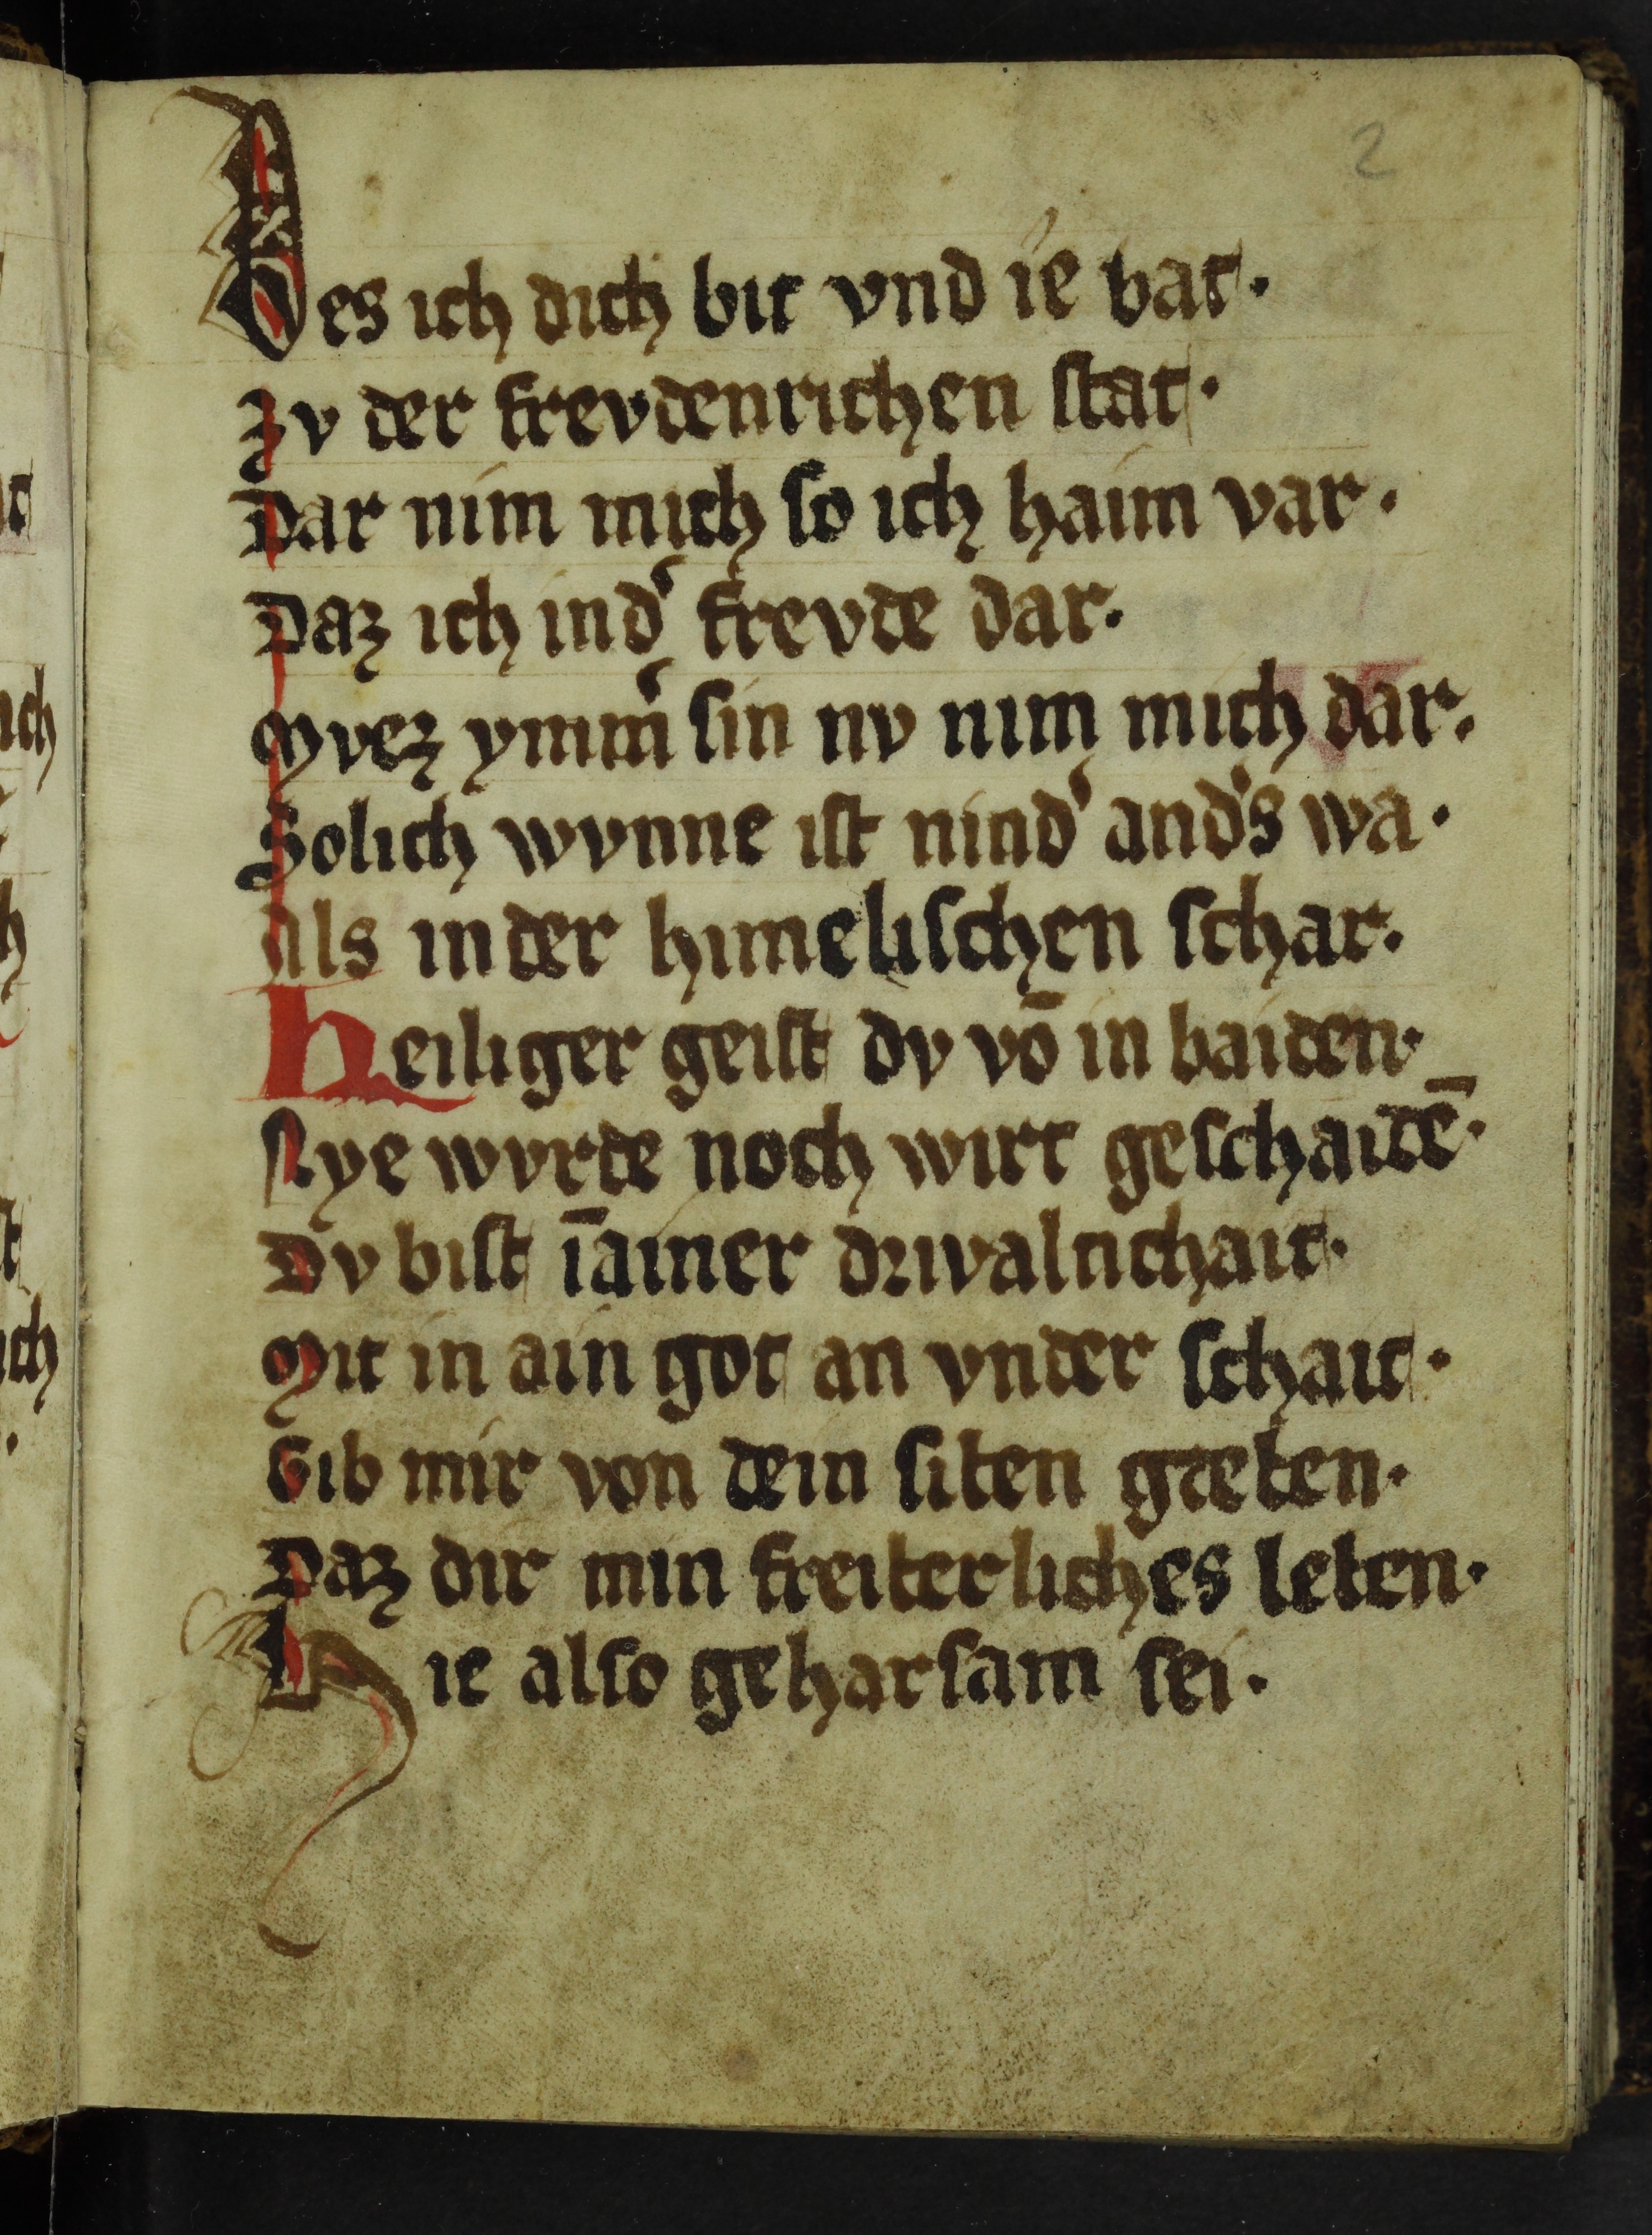 2
Des ich dich bit vnd ie bat·
Zv der frevdenrichen stat·
Dar nim mich so ich haim var·
Daz ich in dˀ frevde dar·
Mvez ymmˀ sin nv nim mich dar·
Solich wvnne ist nindˀ andˀs wa·
Als in der himelischen schar·
Heiliger geist dv vō in baiden·
Nye wvrde noch wirt geschaidē·
Dv bist īainer drivaltichait·
Mit in ain got an vnder schait·
Gib mir von dein siben gæben·
Daz dir min freiberliches leben·
Hie also geharsam sei·